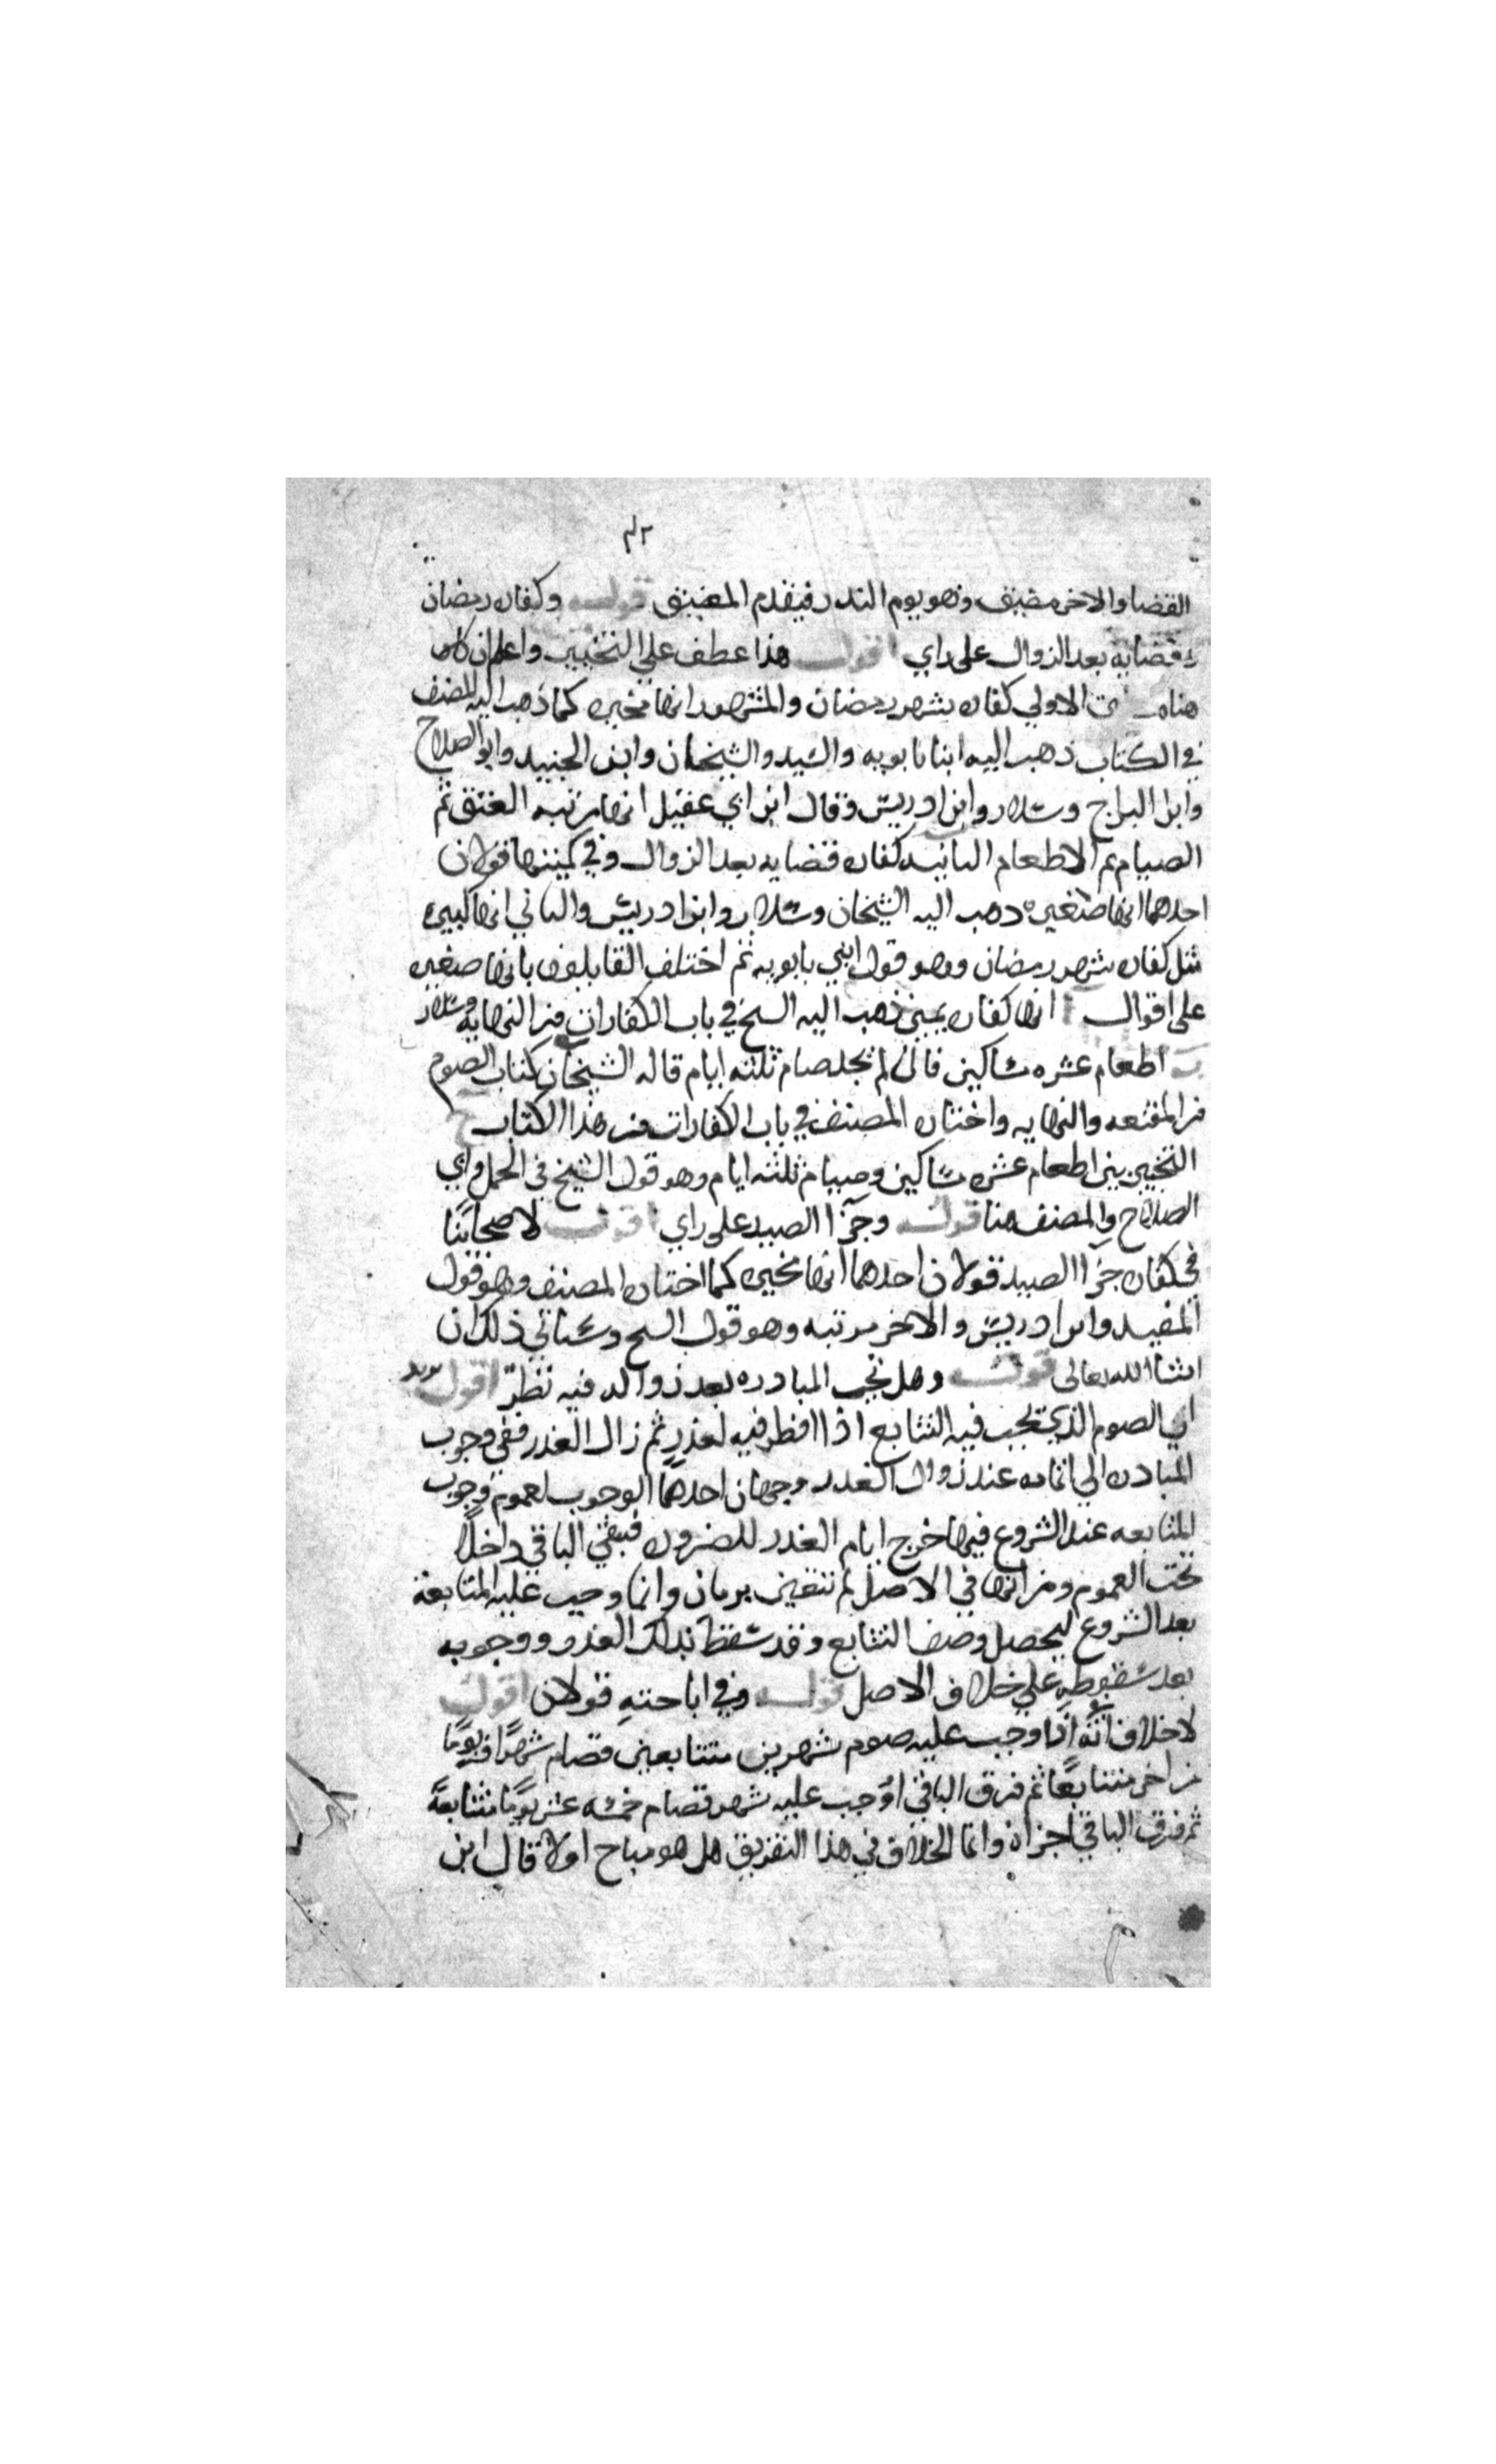 القضا والاخر مضيف وهو يوم الندر فيقدم المضيق قوله وكفاره رمضان
وقضايه بعد الزوال على راي اقول هذا عطف علي التخيير واعلم ان
هنا الاولي كفاره شهر رمضان والمشهور انها مخيره كما ذهب اليه المصنف
في الكتاب ذهب اليه ابنا بابويه والسيد والشيخان وابن الجنيد وابو الصلاح
وابن البراج وسلار وابن ادريس وقال ابن ابي عقيل انها مرتبه العتق ثم
الصيام ثم الاطعام الثانيه كفاره قضايه بعد الزوال وفي كميتها قولان
احدهما انها صغيره ذهب اليه الشيخان وسلار وابن ادريس والثاني انها كبيره
مثل كفاره شهر رمضان وهو قول ابني بابويه ثم اختلف القايلون بانها صغيره
على اقوال ا انها كفاره يمين ذهب اليه الشيخ في باب الكفارات من النهايه وسلار
ب اطعام عشره مساكين فان لم يجد صام ثلثه ايام قاله الشيخان كتاب الصوم
من المقنعه والنهايه واختاره المصنف في باب الكفارات من هذا الكتاب ج
التخيير بين اطعام عشره مساكين وصيام ثلثه ايام وهو قول الشيخ في الجمل وابي
الصلاح والمصنف هنا قوله وجزا الصيد على راي اقول لاصحابنا
في كفاره جزا الصيد قولان احدهما انها مخيره كما اختاره المصنف وهو قول
المفيد وابن ادريس والاخر مرتبه وهو قول الشيخ وسياتي ذلك ان
انشا الله تعالى قوله وهل تجب المبادره بعد زواله فيه نظر اقول يريد
اي الصوم الذي يجب فيه التتابع اذا افطر فيه لعذر ثم زال العذر ففي وجوب
المبادره الي اتمامه عند زوال العذر وجهان احدهما الوجوب لعموم وجوب
المتابعه عند الشروع فيها خرج ايام العذر للضروره فيبقي الباقي داخلا
تحت العموم ومن انها في الاصل لم تتعين بزمان وانما وجب عليه المتابعة
بعد الشروع ليحصل وصف التتابع وقد سقط بذلك العذر ووجوبه
بعد سقوطه علي خلاف الاصل قوله وفي اباحته قولان اقول
لا خلاف انه اذا وجب عليه صوم شهرين متتابعين فصام شهرا ويوما
من اخر متتابعا ثم فرق الباقي او وجب عليه شهر فصام خمسه عشر يوما متتابعة
ثم فرق الباقي اجزاه وانما الخلاف في هذا التفريق هل هو مباح اولا قال ابن